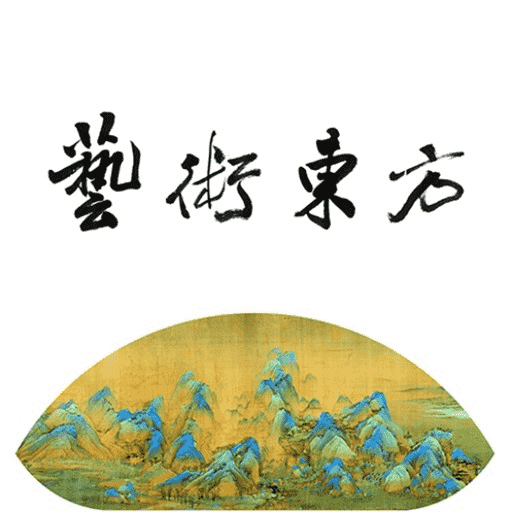 藝術東方